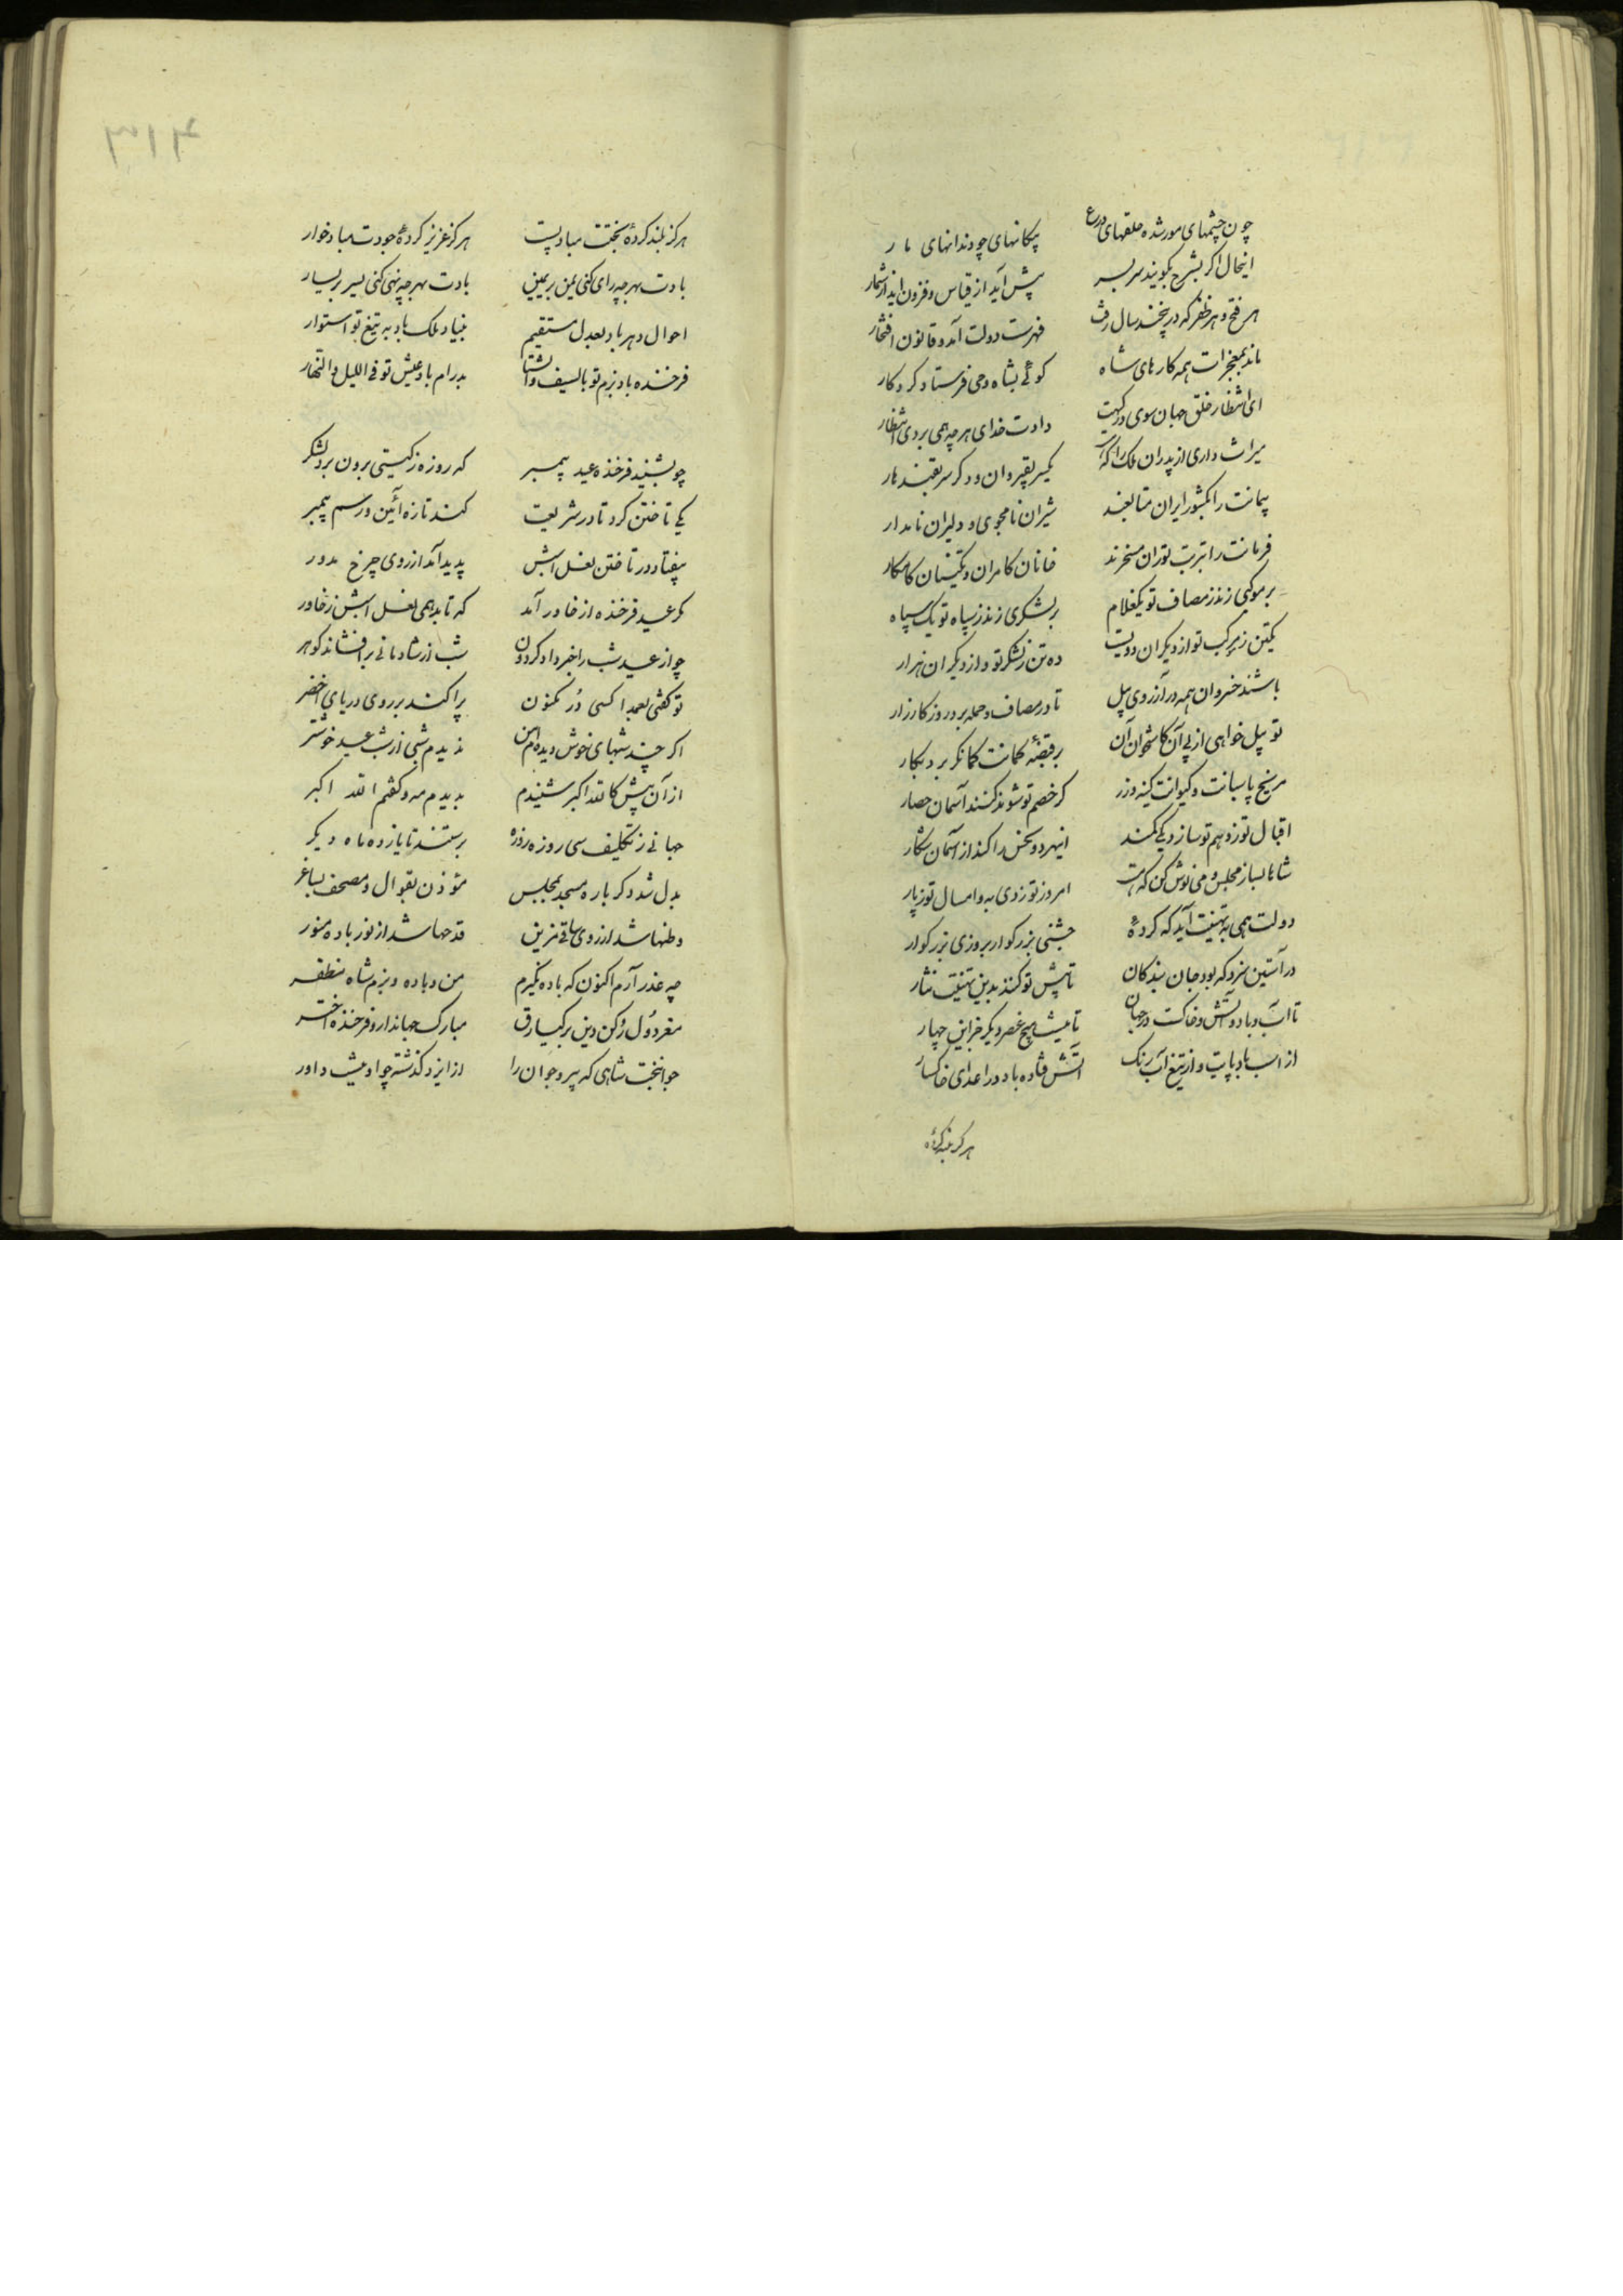 چون چشمهای مورشده حلقهای درع پیکانهای چو دندانهای مار
اینحال اکر بشرح بکویند سربسر پیش آید از قیاس و فزون اید از شمار
هر فتح و هر ظفر که درین چند سال رفت فهرست دولت آمد و قانون افتخار
ماند بمعجزات همه کارهای شاه کوئی بشاه وحی فرستاد کردکار
ای انتظار خلق جهان سوی درکهت دادت خدای هرچه همی بردی انتظار
میراث داری از پدران ملک را که یکسر بقیروان و دکر سر بقندهار
پیمانت را بکشور ایران متابعند شیران نامجوی و دلیران نامدار
فرمانت را بتربت توران مسخرند خانان کامران و تکینان کامکار
بر موکبی زند ز مصاف تو یکغلام بر لشکری زند ز سپاه تو یک سپاه
یکتن ز مرکب تو از دیکران دویست ده تن ز لشکر تو و از دیکران هزار
باشند خسروان همه در آرزوی پیل تا در مصاف حمله برد روز کارزار
تو پیل خواهی از پی آن کاستخوان آن بر قبضه کمانت کمانکر برد بکار
مریخ پاسبانت و کیوانت کینه ورز کر خصم تو شوند کنند آسمان حصار
اقبال تو زوهم تو سازد یکی کمند اینهر دو نحس را کند از آسمان شکار
شاها بساز مجلس و می نوش کن که هست امروز تو ز دی به و امسال تو ز پار
دولت همی به تهنیت آید که کردهٔ جشنی بزرکوار بروزی بزرکوار
در آستین سزد که بود جان بندکان تا پیش تو کنند بدین تهنیت نثار
تا آب و باد و آتش و خاکست در جهان تا نیست هیچ عنصر دیکر جز این چهار
از اسب باد پایت و از تیغ آب رنک آتش فتاده باد در اعدای خاکسار
هرکز بلند کردهٔ
هرکز بلند کردهٔ بختت مباد پست هرکز عزیز کردهٔ جودت مباد خوار
بادت بهرچه رای کنی یمن بر یمین بادت بهرچه نهی کنی یسر بر یسار
احوال دهر باد بعدل تو مستقیم بنیاد ملک باد به تیغ تو استوار
فرخنده باد بزم تو بالصیف والشتا پدرام باد عیش تو فی اللیل والنهار
چو بشنید فرخنده عید پیمبر که روزه زکیتی برون برد لشکر
یکی تاختن کرد تا در شریعت کند تازه آئین و رسم پیمبر
بیفتاد در تاختن نعل اسبش پدید آمد از روی چرخ مدور
مکر عید فرخنده از خاور آمد که تابد همی نعل اسبش ز خاور
چو از عید شب را خبر داد کردون شب از شادمانی برافشاند کوهر
تو کفتی بعمدا کسی دُر مکنون پراکند بر روی دریای اخضر
اکر چند شبهای خوش دیدم من ندیدم شبی از شب عید خوشتر
از آن پیش کالله اکبر شنیدم بدیدم مه و کفتم الله اکبر
جهانی ز تکلیف سی روزه روزه برستند تا یازده ماه دیکر
بدل شد دکر باره مسجد بمجلس مؤذن بقوال و مصحف بساغر
وطنها شد از روی ساقی مزین قدحها شد از نور باده منور
چه عذر آرم اکنون که باده نکیرم من و باده و بزم شاه مظفر
معز دُوَل رُکن دین برکیارق مبارک جهاندار و فرخنده اختر
جوانبخت شاهی که پیر و جوان را از ایزد کذشته چو او نیست داور